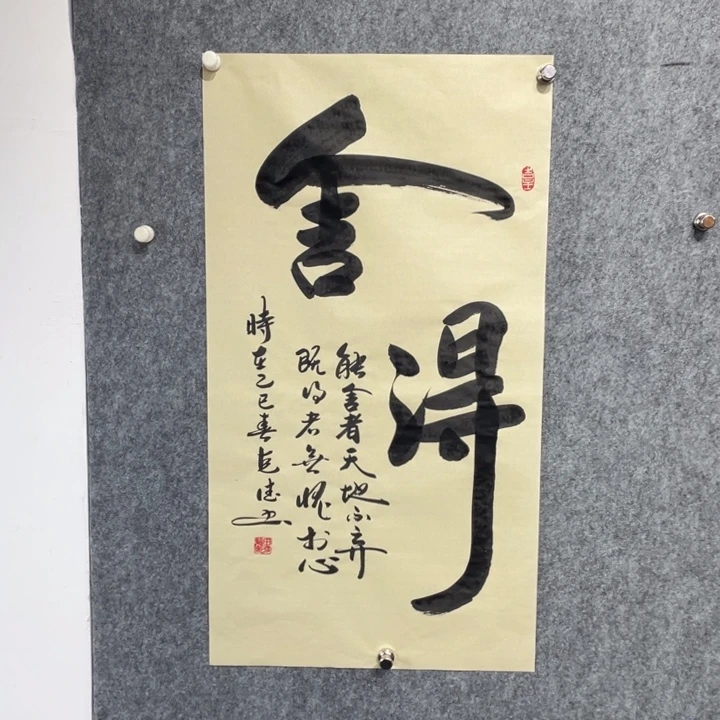 舍得
能舍者天地不弃
既得者無愧於心
時在乙巳春